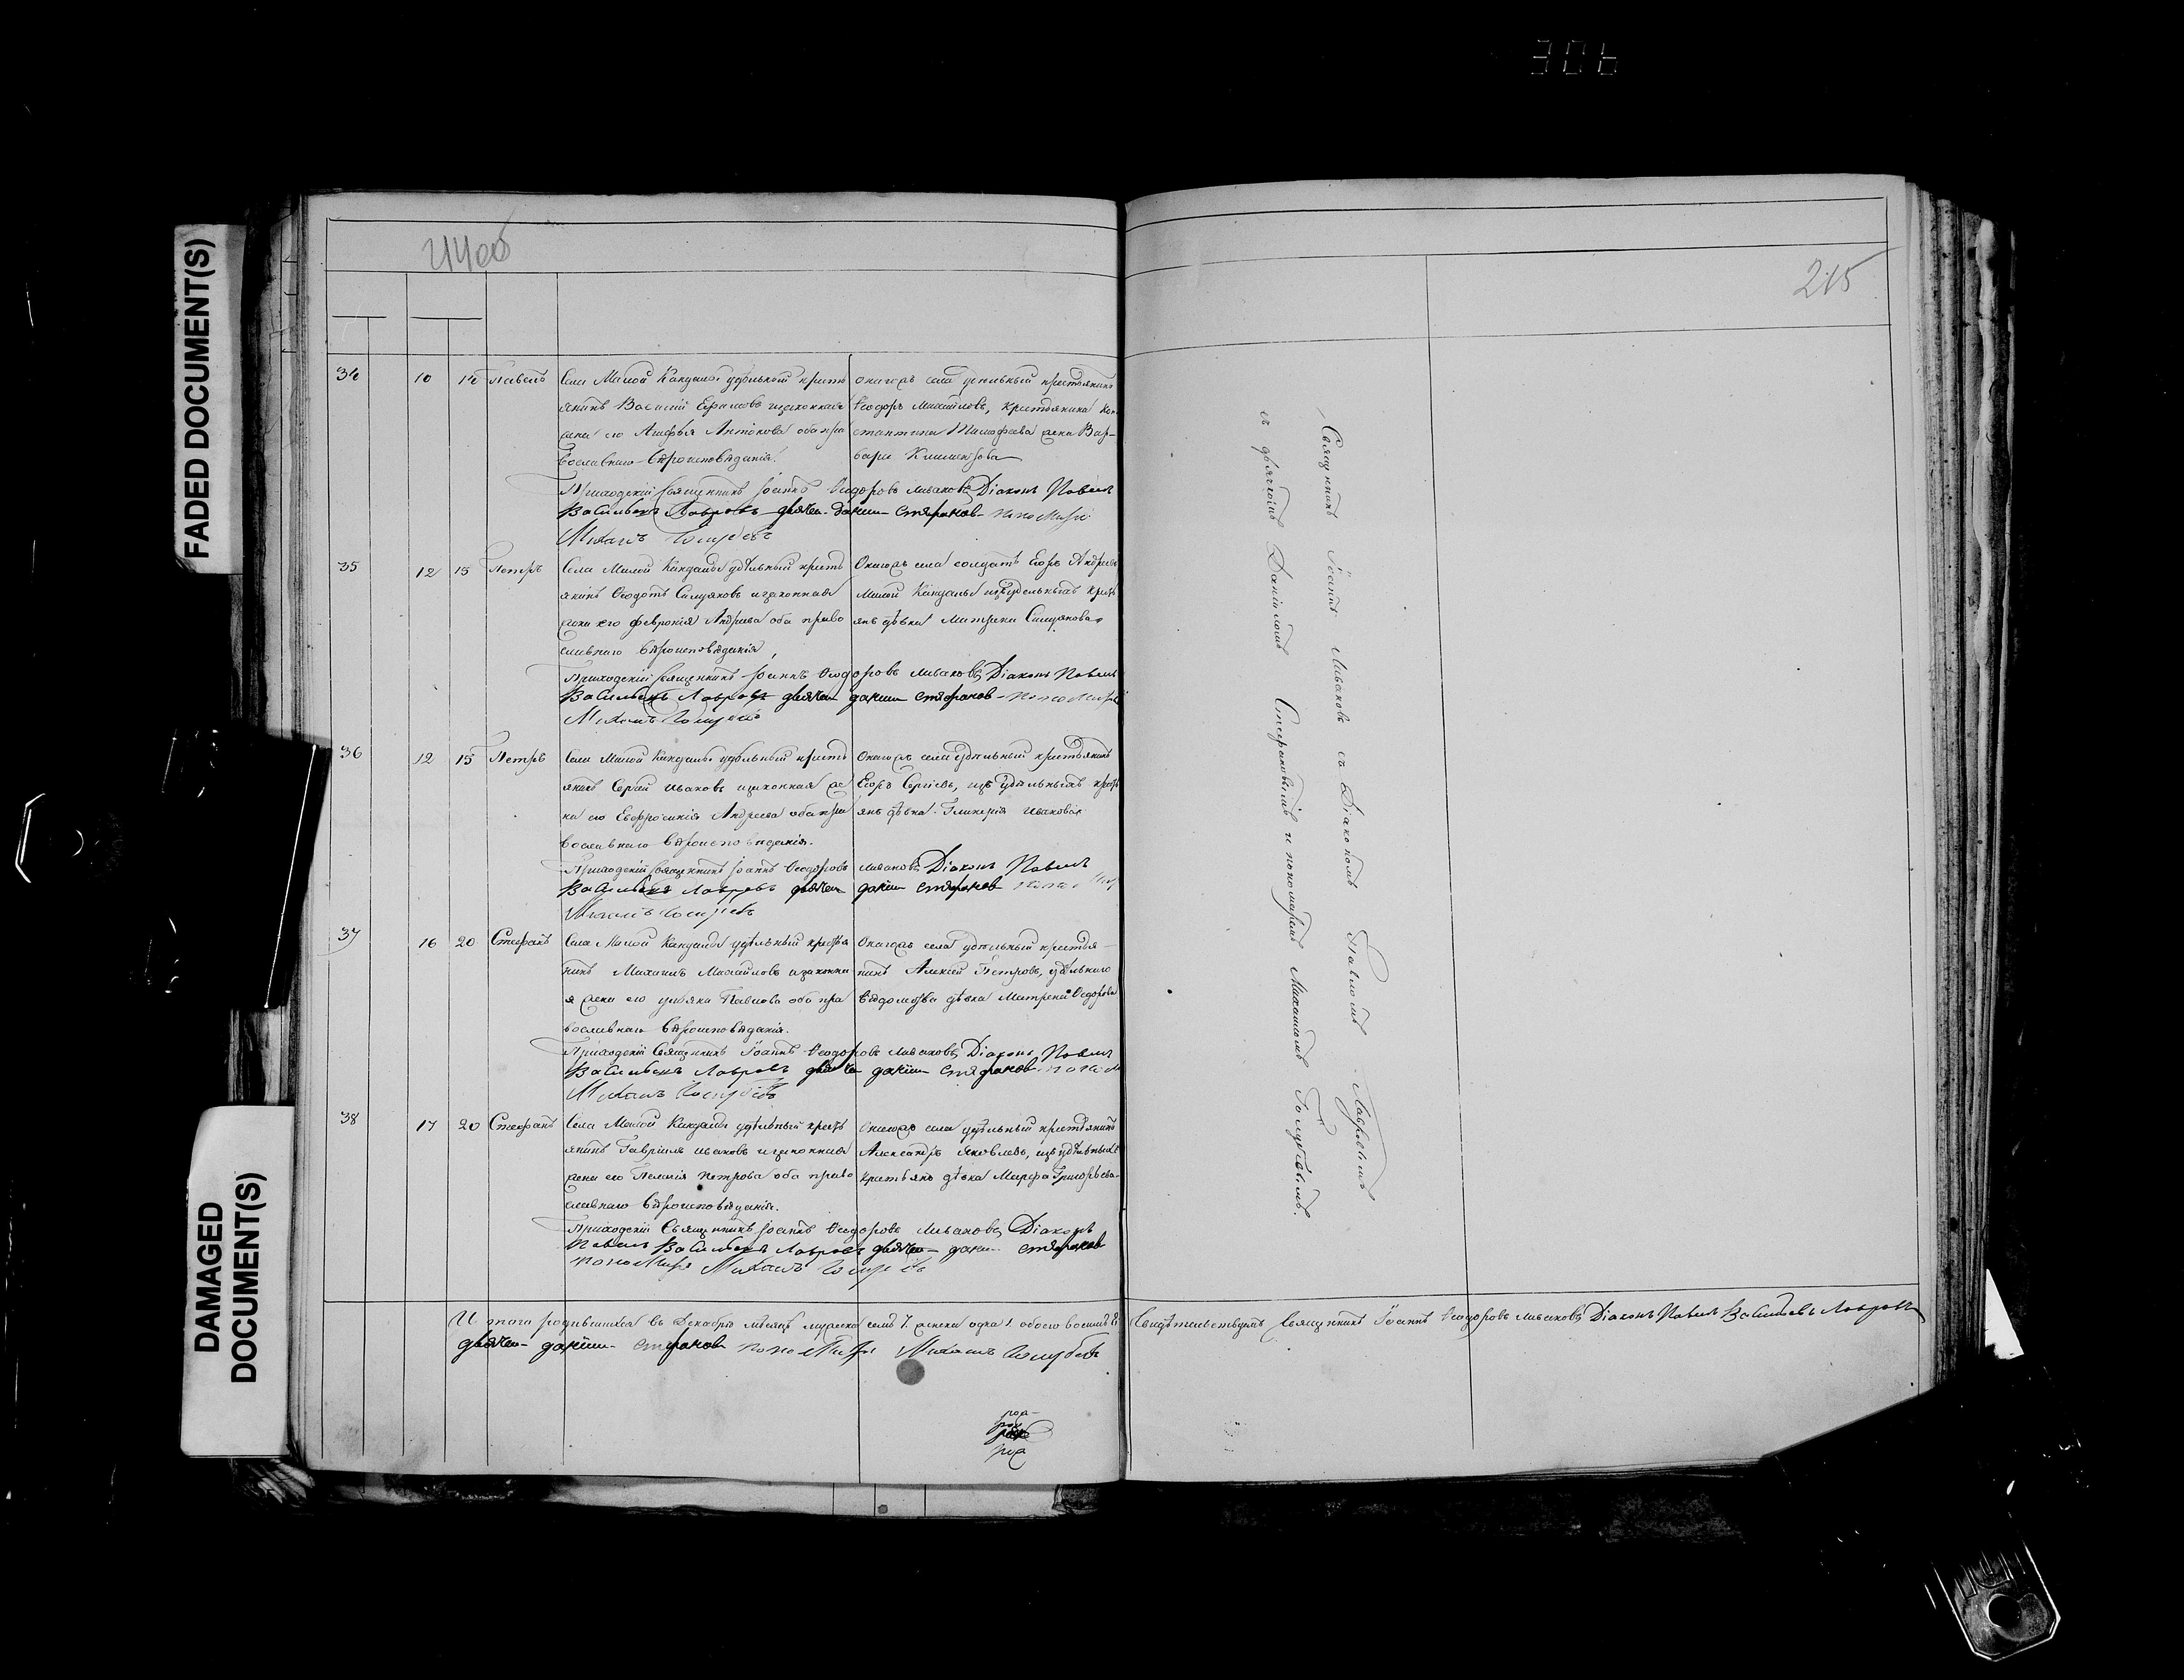 306
FADED DOCUMENT(S)
DAMAGED
DOCUMENT(S)
215
34 10 14 Павелъ Села Малой Кандалы удѣльный кресть
янинъ Василій Ефимовъ и законная
жена его Агафья Антонова оба пра
вославнаго вѣроисповѣданія.
Онагожъ села удѣльный крестьянинъ
Ѳеодоръ Михайловъ, крестьянина Кон-
стантина Тимофеева жена Вар-
вара
Приходскій священникъ Іоаннъ Ѳеодоровъ Ливановъ Діаконъ Павелъ
Васильевъ Лавровъ дьячекъ Стефановъ пономарь
Михаилъ Голубевъ
35 12 15 Петръ Села Малой Кандалы удѣльный кресть
янинъ Ѳеодотъ и законная
жена его Февронія Андреева оба право
славнаго вѣроисповѣданія,
Онагожъ села солдатъ Егоръ Андреевъ
Малой Кандалы изъ удѣльныхъ кресть
янъ дѣвка Матрена
Приходскій священникъ Іоаннъ Ѳеодоровъ Ливановъ Діаконъ Павелъ
Васильевъ Лавровъ дьячекъ Стефановъ пономарь
Михаилъ Голубевъ
36 12 15 Петръ Села Малой Кандалы удѣльный кресть
янинъ Сергѣй Ивановъ и законная же
на его Евфросинія Андреева оба пра
вославнаго вѣроисповѣданія.
Онагожъ села удѣльный крестьянинъ
Егоръ Сергѣевъ, изъ удѣльныхъ кресть
янъ дѣвка Гликерія Иванова
Приходскій священникъ Іоаннъ Ѳеодоровъ Ливановъ Діаконъ Павелъ
Васильевъ Лавровъ дьячекъ Стефановъ
Михаилъ Голубевъ
37 16 20 Стефанъ Села Малой Кандалы удѣльный крестья
нинъ Михаилъ Михайловъ и законна
я жена его Ульяна Павлова оба пра
вославнаго вѣроисповѣданія.
Онагожъ села удѣльный крестья-
нинъ Алексѣй Петровъ, удѣльнаго
вѣдомства дѣвка Матрена Ѳедорова
Приходскій Священникъ Іоаннъ Ѳеодоровъ Ливановъ Діаконъ Павелъ
Васильевъ Лавровъ дьячекъ Стефановъ
Михаилъ Голубевъ
38 17 20 Стефанъ Села Малой Кандалы удѣльный кресть
янинъ Гавріилъ Ивановъ и законная
жена его Пелагія Петрова оба право
славнаго вѣроисповѣданія.
Онагожъ села удѣльный крестьянинъ
Александръ Яковлевъ, изъ удѣльныхъ
крестьянъ дѣвка Марфа Григорьева
Приходскій Священникъ Іоаннъ Ѳеодоровъ Ливановъ Діаконъ
Павелъ Васильевъ Лавровъ дьячекъ Стефановъ
пономарь Михаилъ Голубевъ
Итого родившихся въ Декабрѣ мѣсяцѣ мужеска семь 7. женска одна 1. обоего восемь 8
Свидѣтельствуемъ Священникъ Іоаннъ Ѳеодоровъ Ливановъ Діаконъ Павелъ Васильевъ Лавровъ
дьячекъ Стефановъ пономарь Михаилъ Голубевъ
Священникъ Іоаннъ Ливановъ съ Діакономъ Павломъ Лавровымъ
съ дьячкомъ Даніиломъ Стефановымъ и пономаремъ Михаиломъ Голубевымъ.